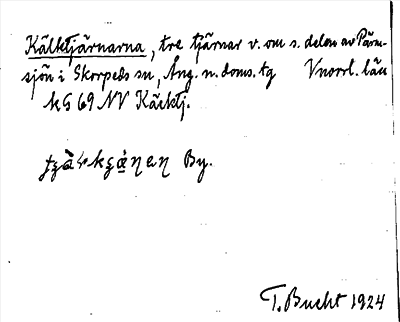 Kälktjärnarna, tre tjärnar v. om s. delen av Pärn-
sjön i Skorpeds sn, Ång. n. doms. tg Vnorrl. län
k G 69 NV Kälktj.
By.
T. Bucht 1924